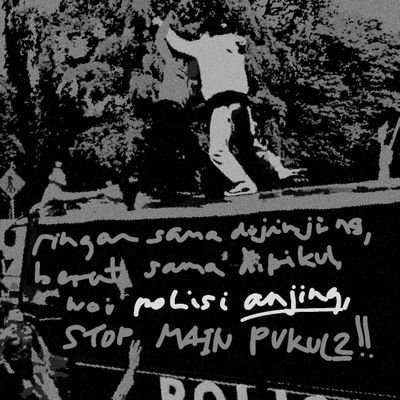 ringan sama dijinjing,
berat sama dipikul,
woi polisi anjing,
STOP MAIN PUKUL2!!
POLIC